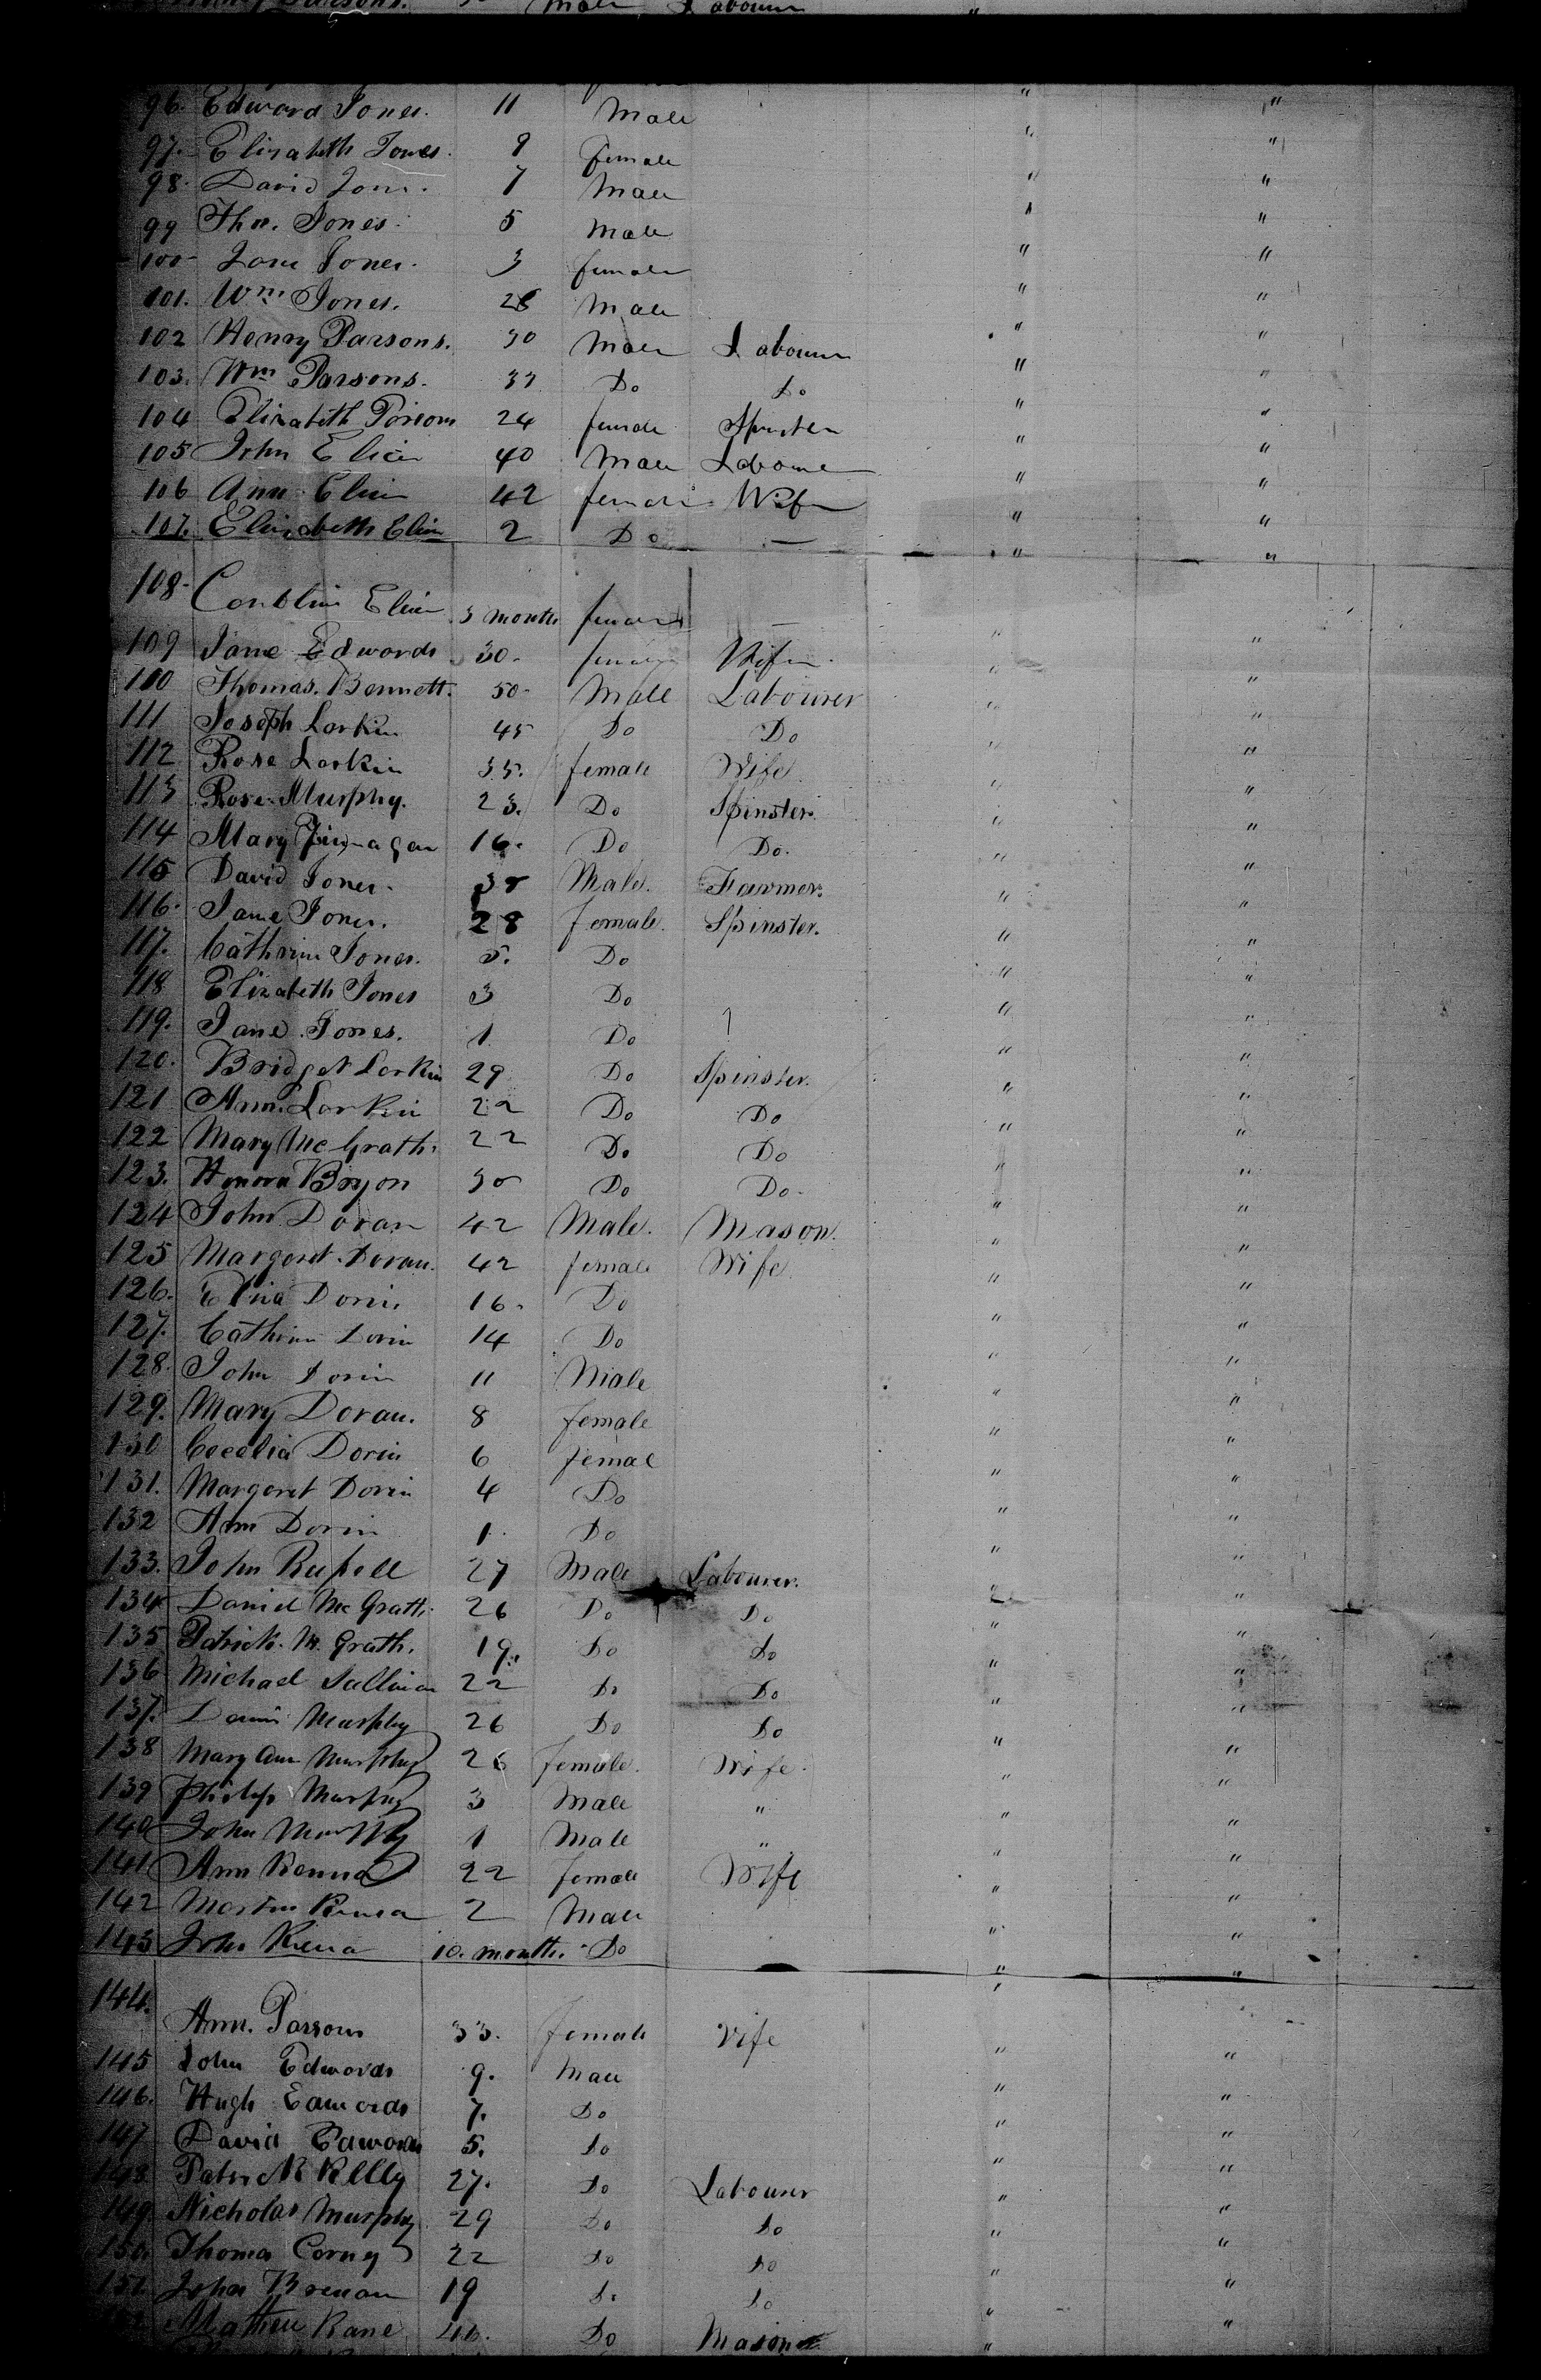 Male Labourer "
96. Edward Jones. 11 Male " "
97. Elizabeth Jones. 9 female " "
98. David Jones. 7 Male " "
99 Thos. Jones. 5 Male " "
100 Jane Jones. 3 female " "
101. Wm Jones. 28 Male " "
102 Henry Parsons. 30 Male Labourer " "
103. Wm Parsons. Do Do " "
104 Elizabeth Parsons 24 female Spinster " "
105 John 40 Male Labourer " "
106 Ann 42 female Wife " "
107. Elizabeth 2 Do — " "
108. 3 months female — " "
109 Jane Edwards 30. female Wife " "
110 Thomas. Bennett. 50. Male Labourer " "
111 Joseph Larkin 45 Do Do " "
112 Rose Larkin 35. female Wife " "
113 Rose Murphy. 23. Do Spinster. " "
114 Mary Finnagan 16. Do Do. " "
115 David Jones. Male. Farmer. " "
116. Jane Jones. 28 female. Spinster. " "
117. Cathrine Jones. 5. Do " "
118 Elizabeth Jones 3 Do " "
119. Jane Jones. 1 Do " "
120. Bridget Larkin 29 Do Spinster. " "
121 Ann. Larkin 22 Do Do " "
122 Mary Mc Grath. 22 Do Do " "
123. Honora Bryon 30 Do Do. " "
124 John Doran 42 Male. Mason. " "
125 Margaret Doran. 42 female Wife " "
126. Eliza Dorin. 16. Do " "
127. Cathrine Dorin 14 Do " "
128. John Dorin 11 Male " "
129. Mary Doran. 8 female " "
130 Cecelia Dorin 6 femal " "
131. Margaret Dorin 4 Do " "
132 Ann Dorin 1. Do " "
133. John Russell 27 Male Labourer. " "
134 Daniel Mc Grath. 26 Do Do " "
135 Patrick Mc Grath. 19. Do Do " "
136 Michael Sullivan 22 Do Do " "
137. Murphy 26 Do Do " "
138 Mary Ann Murphy 26 female. Wife. " "
139 Philip Murphy 3 Male " " "
140 John Murphy 1 Male " " "
141 Ann Kenna 22 female Wife " "
142 Martin Kenna 2 Male " "
143 John Kena 10. months. Do " "
144. Ann. Parsons 33. female Wife " "
145 John Edwards 9. Male " "
146. Hugh Edwards 7. Do " "
147 David Edwards 5. Do " "
148 Patrick Kelly 27. Do Labourer " "
149 Nicholas Murphy 29 Do Do " "
150. Thomas Corny 22 Do Do " "
151. John Brenan 19 Do Do " "
Mathew Kane 40. Do Mason " "